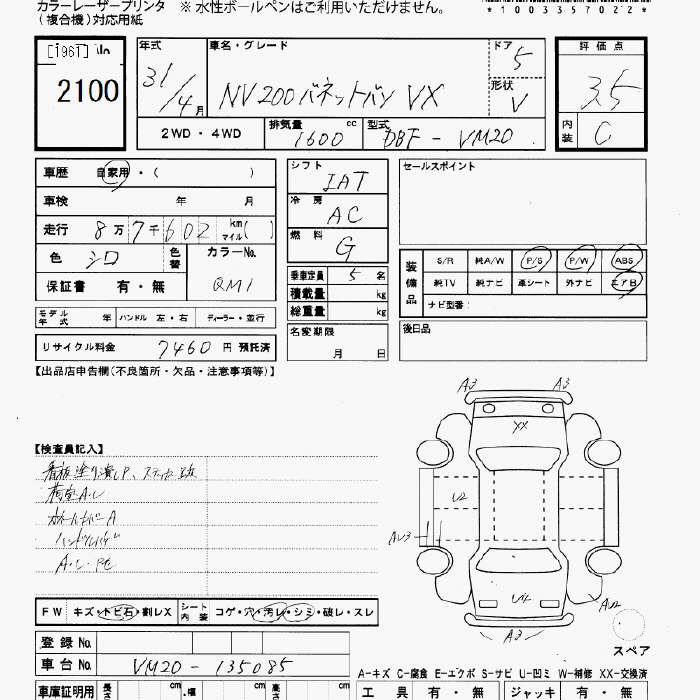 カラーレーザープリンタ ※ 水性ボールペンはご利用いただけません。
(複合機)対応用紙
*1003357022*
[1961]
2100
年式 31/4月
車名・グレード NV200バネットバン VX
ドア 5
形状 V
2WD ・ 4WD
排気量 1600 cc
型式 DBF - VM20
評価点 3.5
内装 C
車歴 自家用 ・( )
車検 年 月
走行 8万7千602 km マイル( )
色 シロ 色替 カラーNo.
保証書 有・無 QM1
モデル年式 年 ハンドル 左・右 ディーラー・並行
リサイクル料金 7460円 預託済
シフト IAT
冷房 AC
燃料 G
乗車定員 5 名
積載量 kg
総重量 kg
名変期限 月 日
セールスポイント
装備品 S/R 純A/W P/S P/W ABS
純TV 純ナビ 革シート 外ナビ エアB
ナビ型番:
後日品
【出品店申告欄(不良箇所・欠品・注意事項等)】
【検査員記入】
荷室A.U
ハンドル
A・U・PE
FW キズ・トビ石・割レX シート内装 コゲ・穴・汚レ・シミ・破レ・スレ
登録 No.
車台 No. VM20 - 135085
車庫証明用 長さ cm ・幅 cm 高さ cm
A3 A3
XX
U2
AU3
U4
AU2
A3
スペア
A−キズ C−腐食 E−エクボ S−サビ U−凹ミ W−補修 XX−交換済
工具 有・無 ジャッキ 有・無